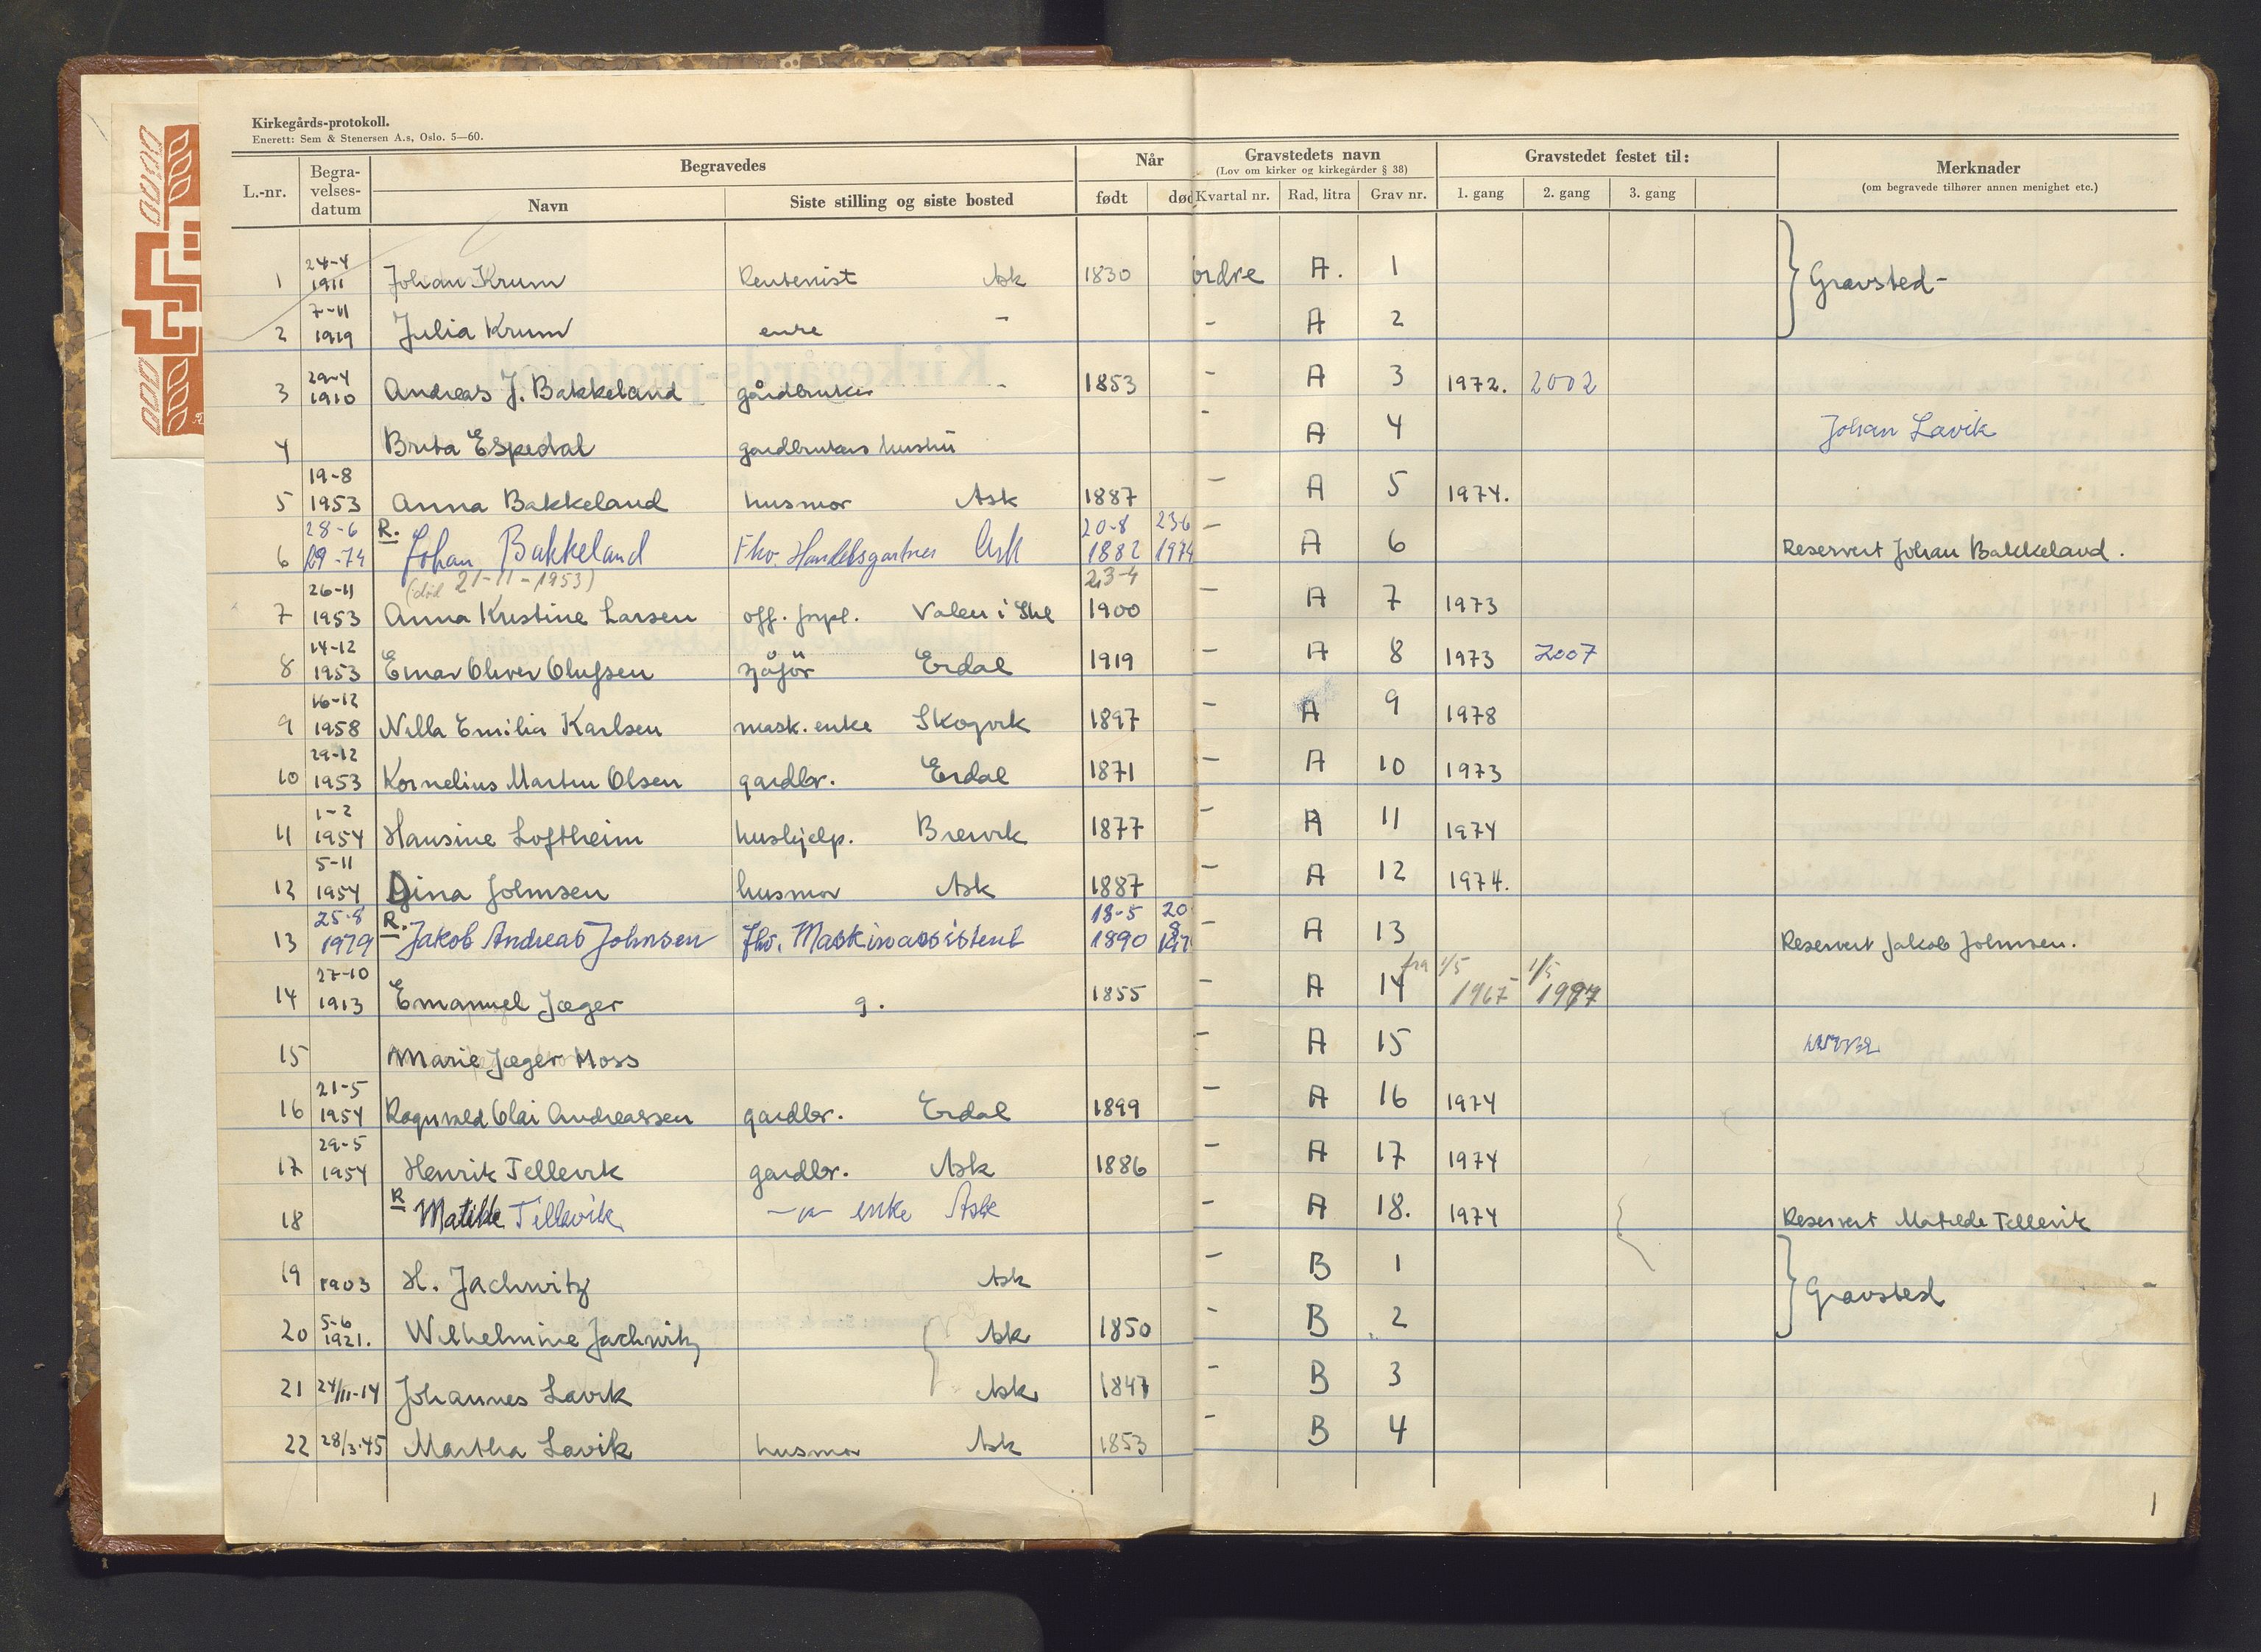 Kirkegårds-protokoll.
Enerett: Sem & Stenersen A.s, Oslo. 5—60.
L.-nr. Begra-velses-datum Begravedes Når Gravstedets navn Gravstedet festet til: Merknader
(Lov om kirker og kirkegårder § 38) (om begravede tilhører annen menighet etc.)
Navn Siste stilling og siste bosted født død Kvartal nr. Rad, litra Grav nr. 1. gang 2. gang 3. gang
1 24-4 1911 Johan Krum Rentenist Ask 1830 ordre A. 1 } Gravsted -
2 7-11 1919 Julia Krum enke - - A 2
3 29-4 1910 Andreas J. Bakkeland gårdbruker - 1853 - A 3 1972. 2002
4 Brita Espedal gardbrukers hustru - A 4 Johan Lavik
5 19-8 1953 Anna Bakkeland husmor Ask 1887 - A 5 1974.
6 28-6 -74 R. Johan Bakkeland Fhv. Handelsgartner Ask 20-8 1882 23-6 1974 - A 6 Reservert Johan Bakkeland.
(død 21-11-1953)
7 26-11 1953 Anna Kristine Larsen off. forpl. Valen i 23-4 1900 - A 7 1973
8 14-12 1953 Einar Oliver Olufsen sjåfør Erdal 1919 - A 8 1973 2007
9 16-12 1958 Nilla Emilia Karlsen mask. enke Skogvik 1897 - A 9 1978
10 29-12 1953 Kornelius Martin Olsen gardbr. Erdal 1871 - A 10 1973
11 1-2 1954 Hansine Loftheim hushjelp. Breivik 1877 - A 11 1974
12 5-11 1954 Dina Johnsen husmor Ask 1887 - A 12 1974.
13 25-8 1979 R. Jakob Andreas Johnsen fhv. Maskinassistent 18-5 1890 20 8 197 - A 13 Reservert Jakob Johnsen.
14 27-10 1913 Emanuel Jæger g. 1855 - A 14 fra 1/5 1967 1/5 1987
15 Marie Jæger Moss - A 15
16 21-5 1954 Ragnvald Olai Andreassen gardbr. Erdal 1899 - A 16 1974
17 29-5 1954 Henrik Tellevik gardbr. Ask 1886 - A 17 1974
18 R Matilde Tellevik -"- enke Ask - A 18. 1974 Reservert Matilde Tellevik
19 1903 H. Jachwitz Ask - B 1 } Gravsted -
20 5-6 1921. Wilhelmine Jachwitz Ask 1850 - B 2
21 24/11-14 Johannes Lavik Ask 1847 - B 3
22 28/3-45 Martha Lavik husmor Ask 1853 - B 4
1